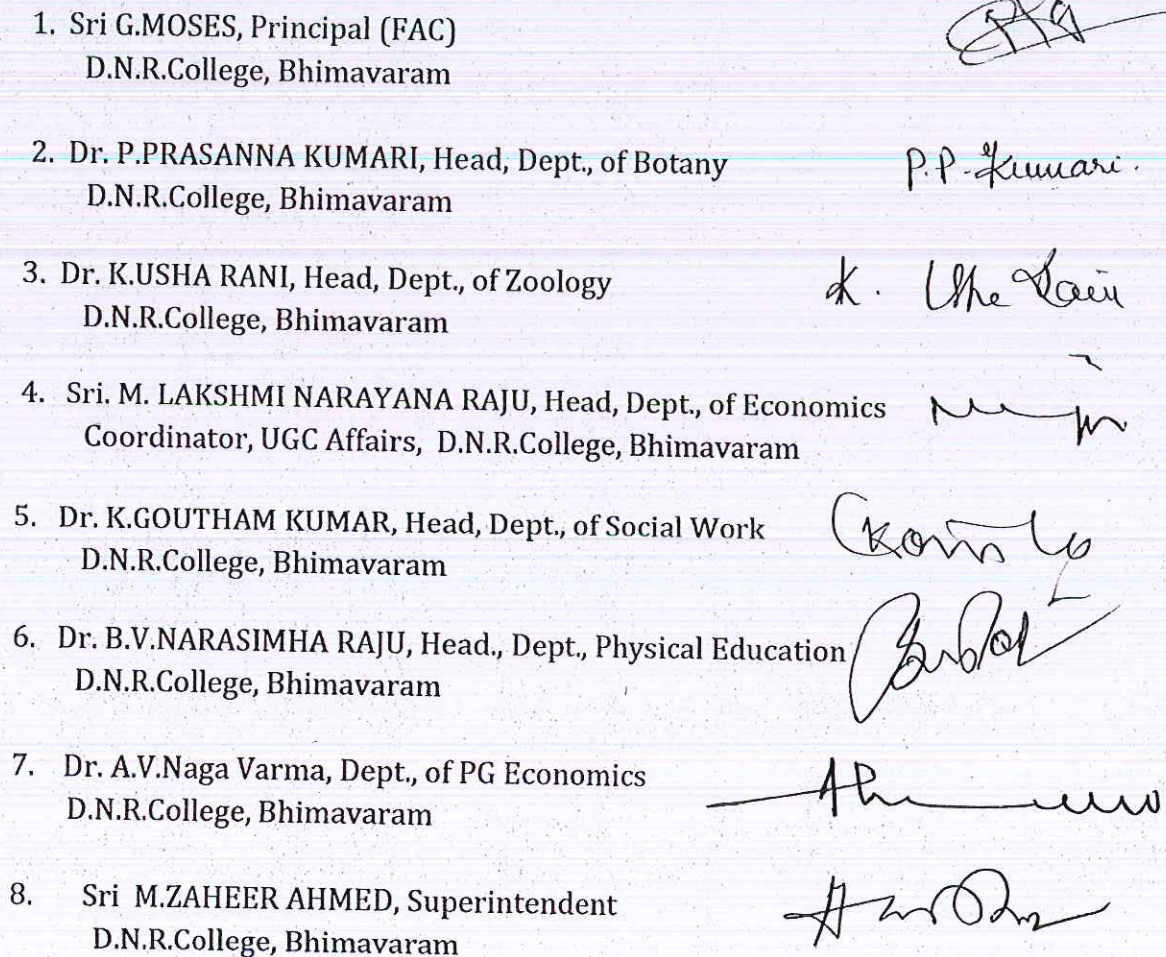 1. Sri G.MOSES, Principal (FAC)
D.N.R.College, Bhimavaram
2. Dr. P.PRASANNA KUMARI, Head, Dept., of Botany P.P. Kumari.
D.N.R.College, Bhimavaram
3. Dr. K.USHA RANI, Head, Dept., of Zoology K. Usha Rani
D.N.R.College, Bhimavaram
4. Sri. M. LAKSHMI NARAYANA RAJU, Head, Dept., of Economics
Coordinator, UGC Affairs, D.N.R.College, Bhimavaram
5. Dr. K.GOUTHAM KUMAR, Head, Dept., of Social Work
D.N.R.College, Bhimavaram
6. Dr. B.V.NARASIMHA RAJU, Head., Dept., Physical Education
D.N.R.College, Bhimavaram
7. Dr. A.V.Naga Varma, Dept., of PG Economics
D.N.R.College, Bhimavaram
8. Sri M.ZAHEER AHMED, Superintendent
D.N.R.College, Bhimavaram